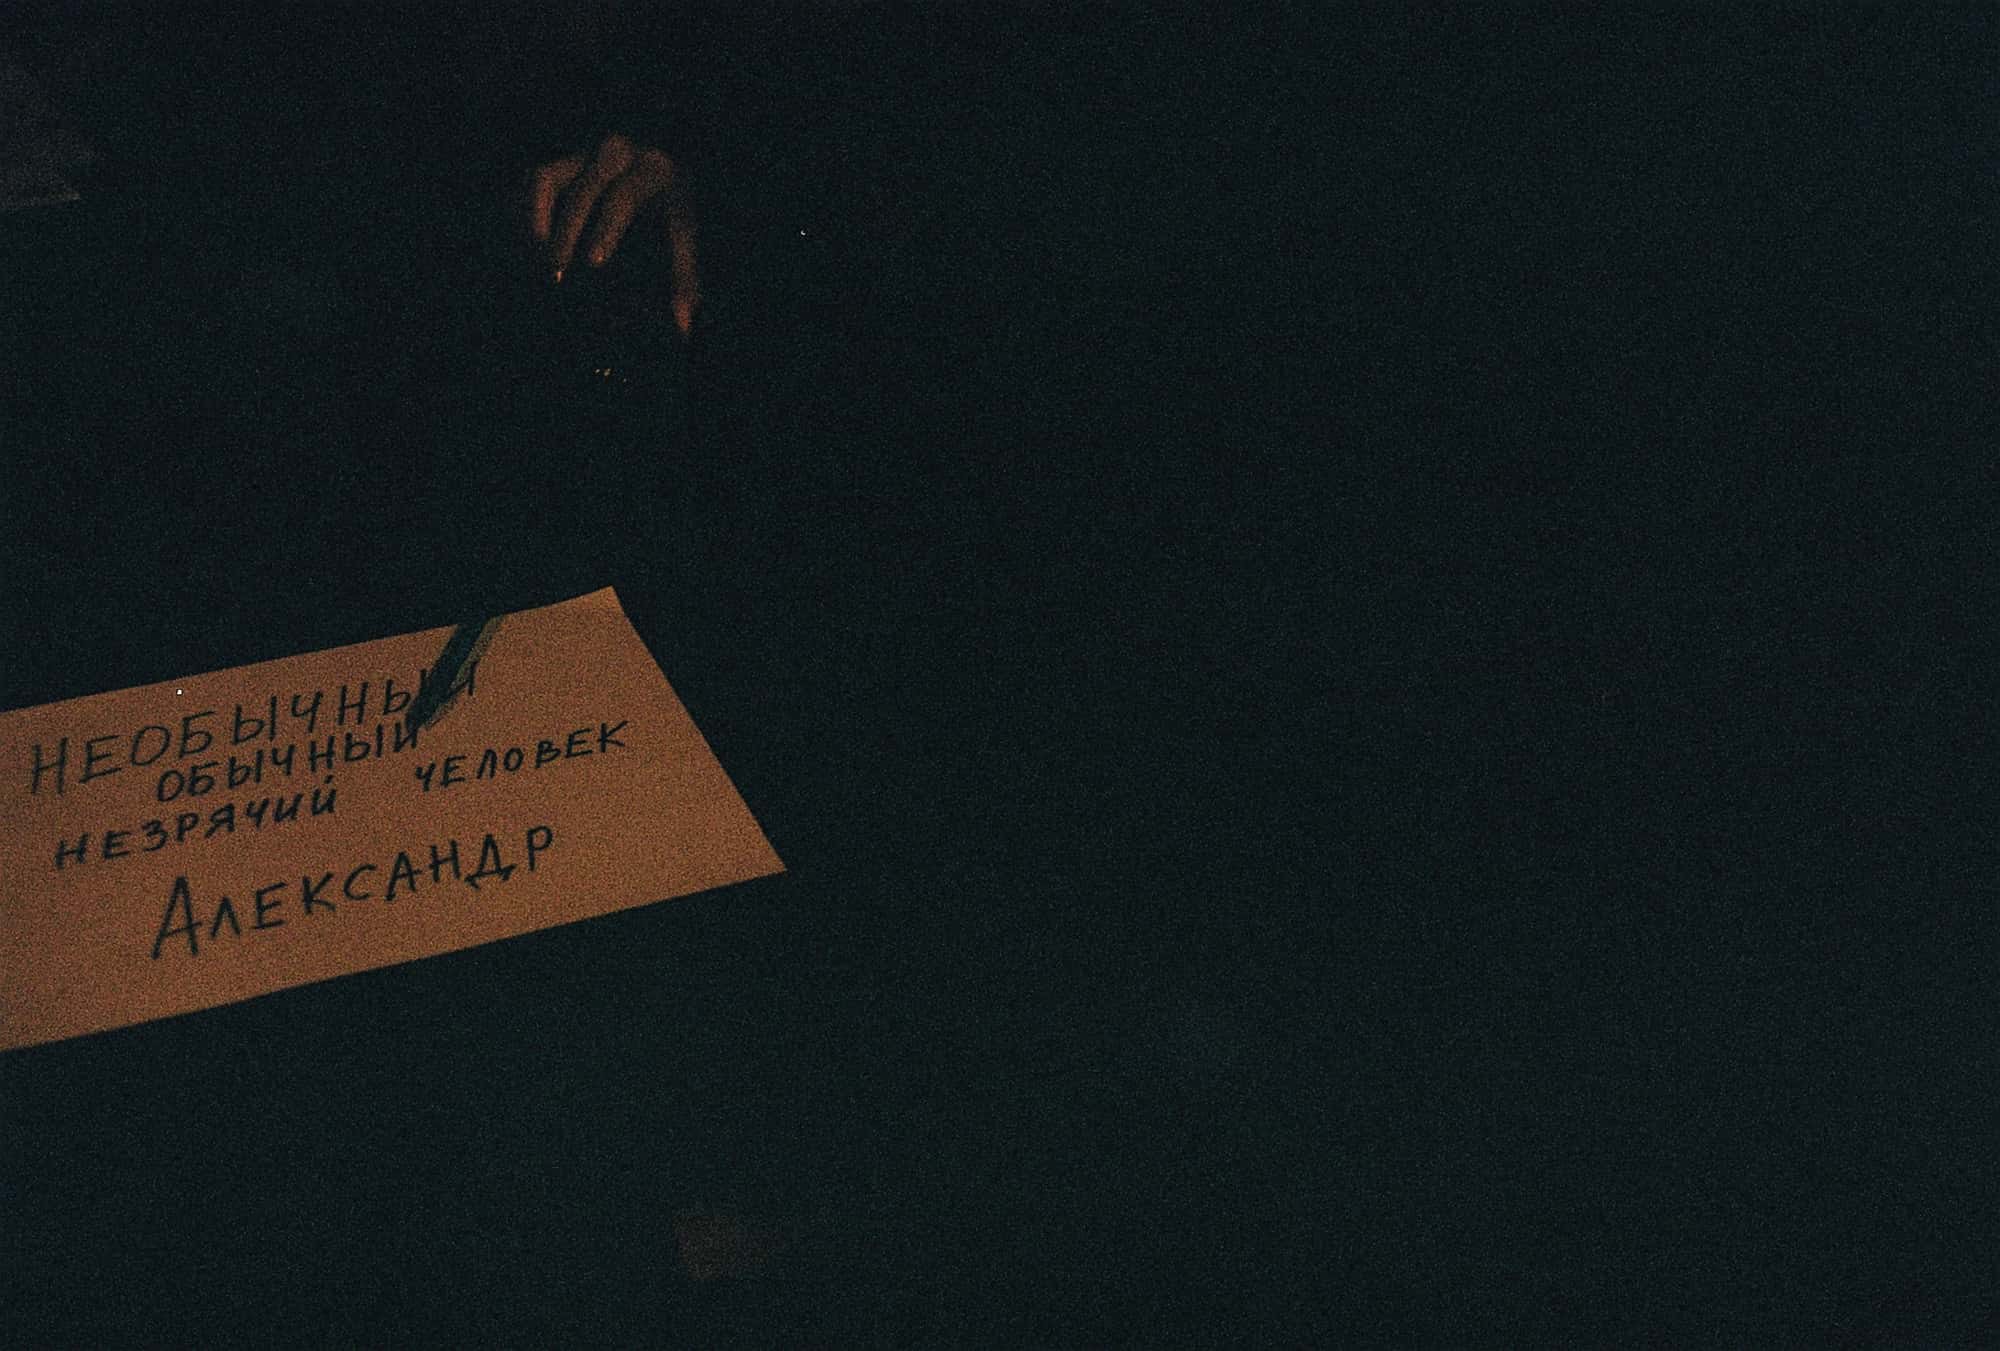 НЕОБЫЧНЫЙ
ОБЫЧНЫЙ
НЕЗРЯЧИЙ ЧЕЛОВЕК
АЛЕКСАНДР